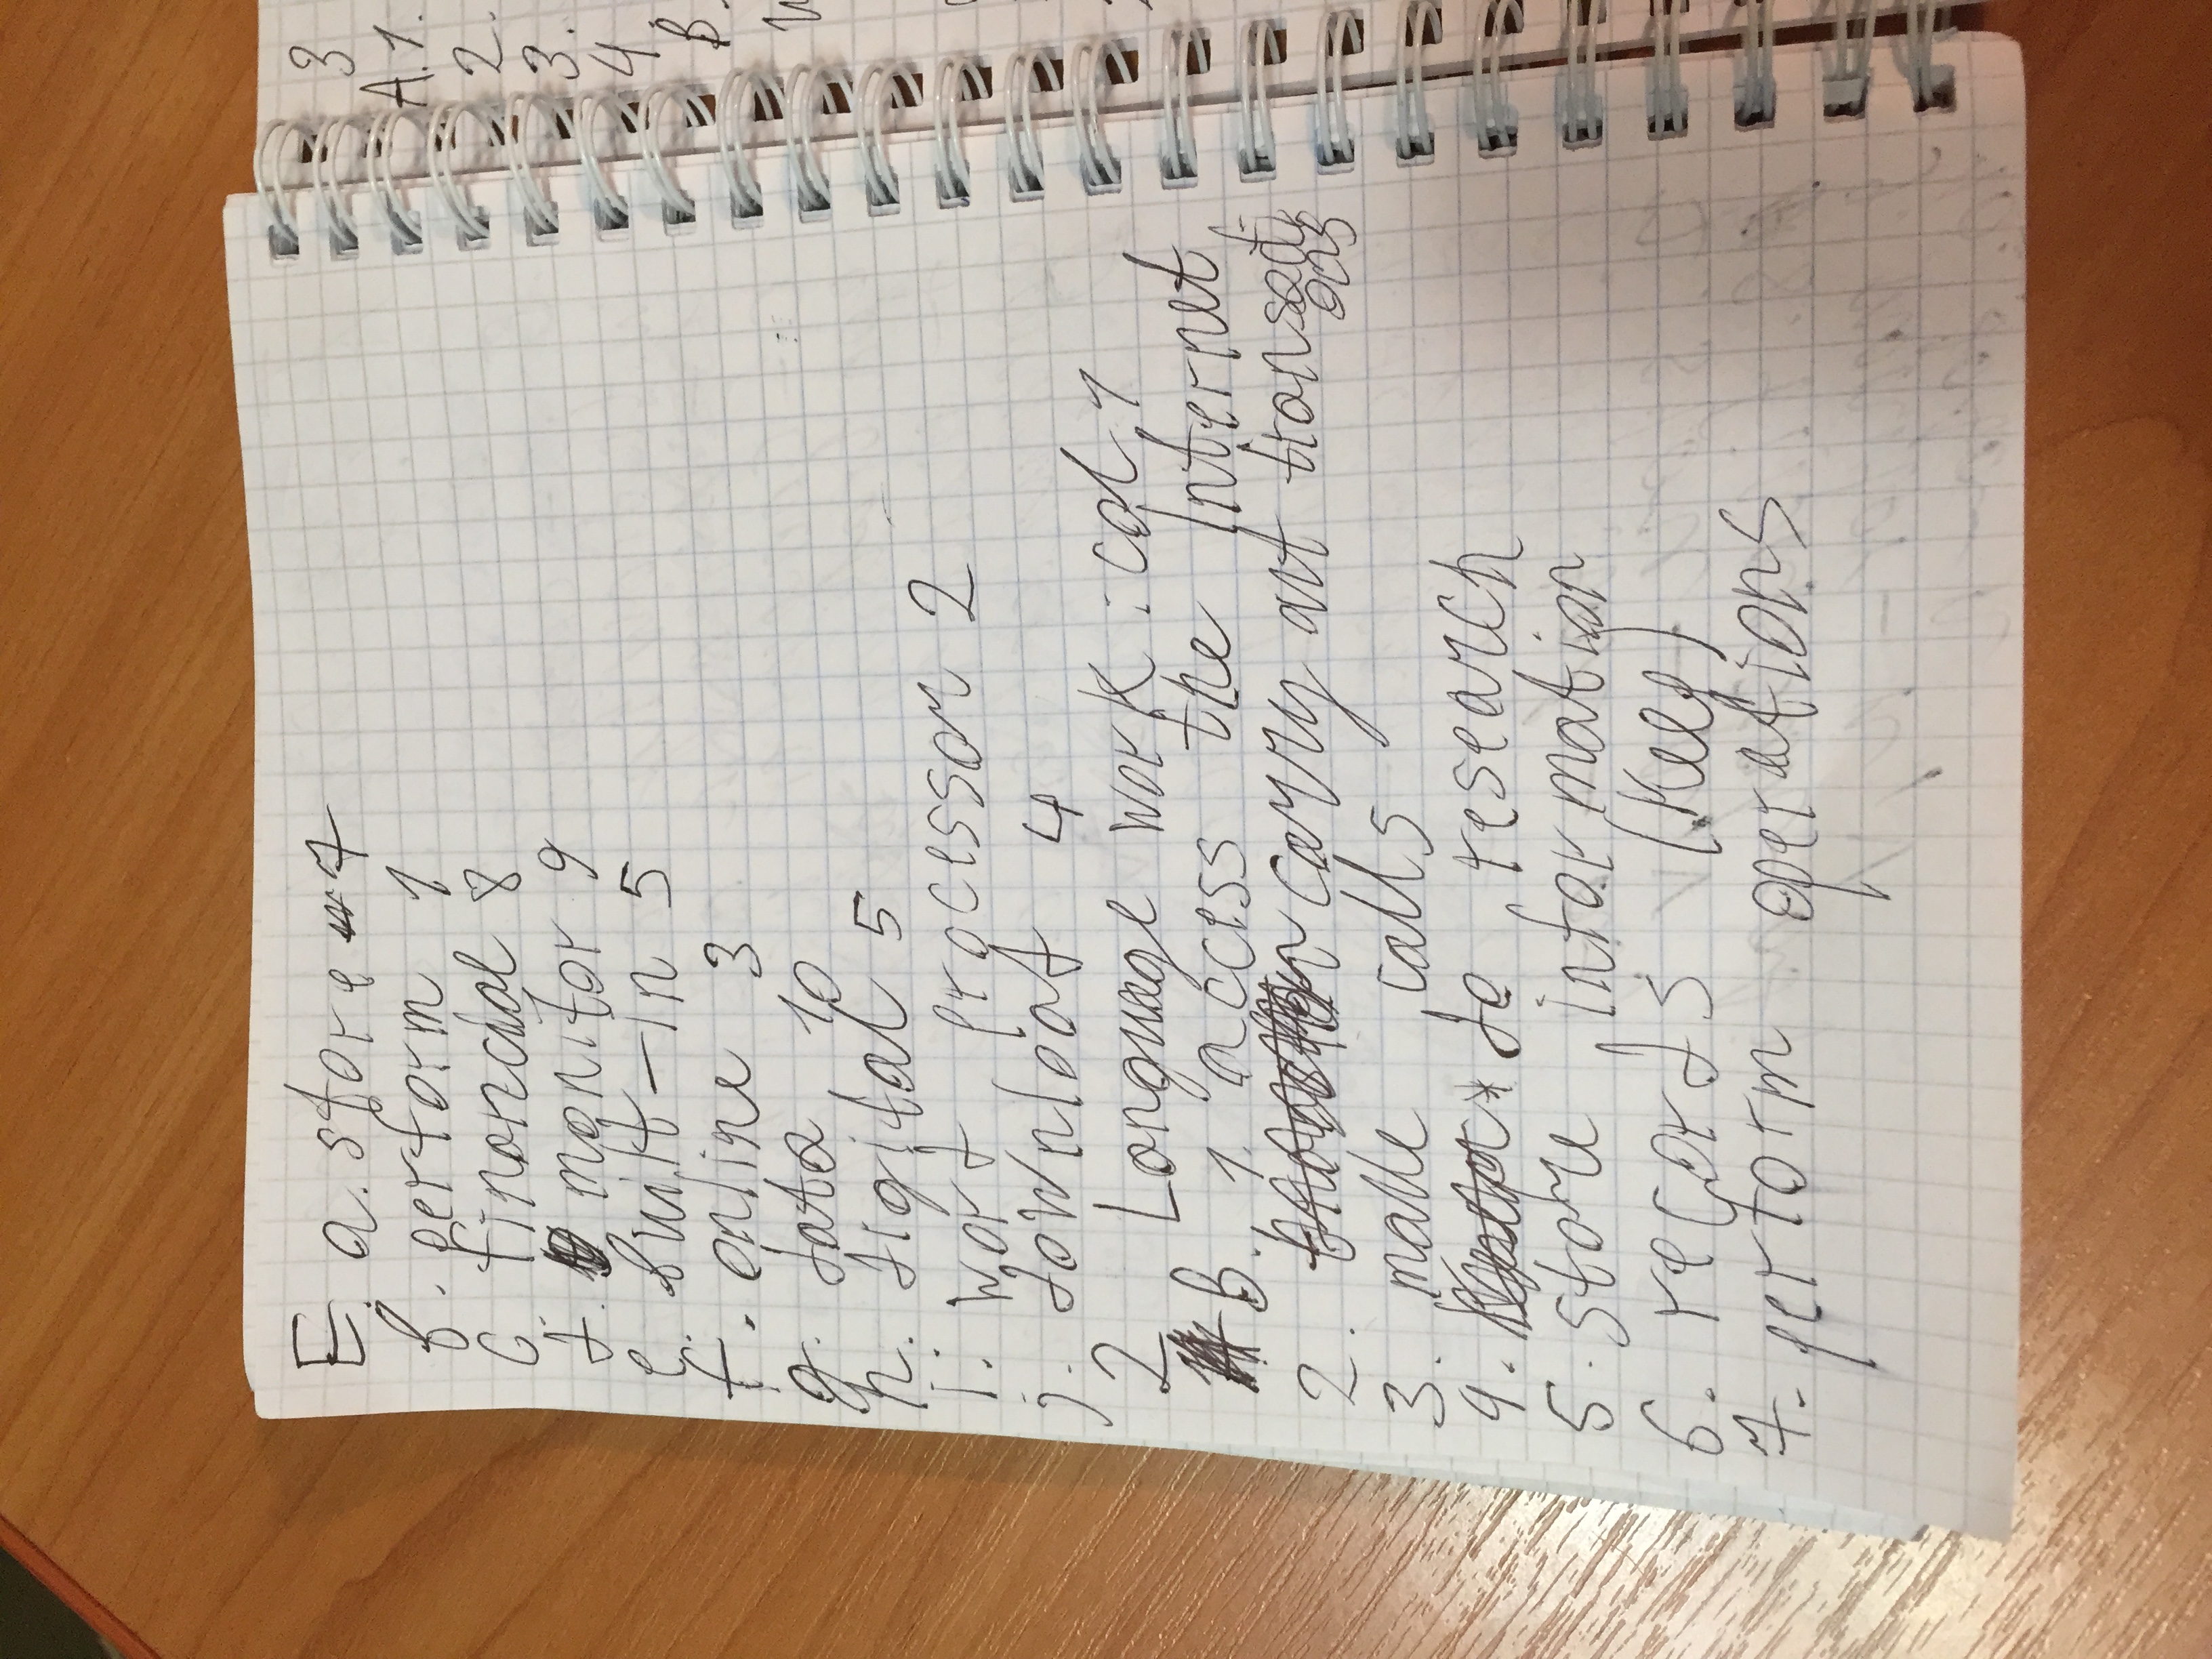 E. a. store 7
b. perform 1
c. financial 8
d. monitor 9
e. built-in 5
f. online 3
g. data 10
h. digital 5
i. word processor 2
j. download 4
2 Language work: col. 1
B. 1. access the Internet
2. carry out transacti
ons
3. make calls
4. * do research
5. store information
6. records (keep)
7. perform operations
3
A. 1.
2.
3.
4.
B.